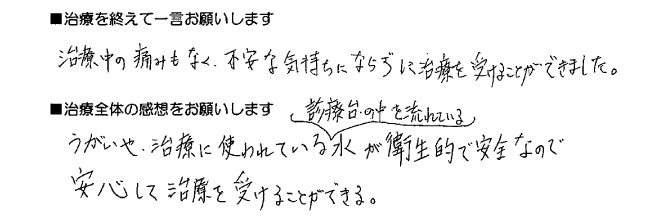 ■治療を終えて一言お願いします
治療中の痛みもなく、不安な気持ちにならずに治療を受けることができました。
■治療全体の感想をお願いします
診療台の中を流れている
うがいや、治療に使われている水が衛生的で安全なので
安心して治療を受けることができる。